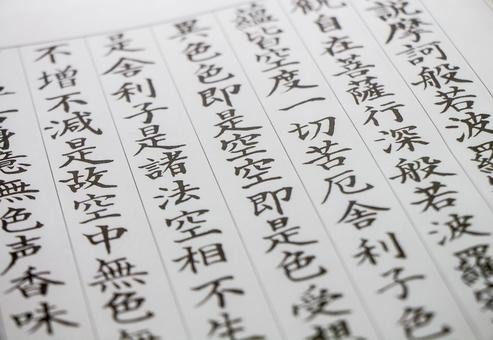 説摩訶般若波羅
観自在菩薩行深般若波羅
蘊皆空度一切苦厄舎利子色
異色色即是空空即是色受想
是舎利子是諸法空相不生
不増不減是故空中無色無
意無色声香味